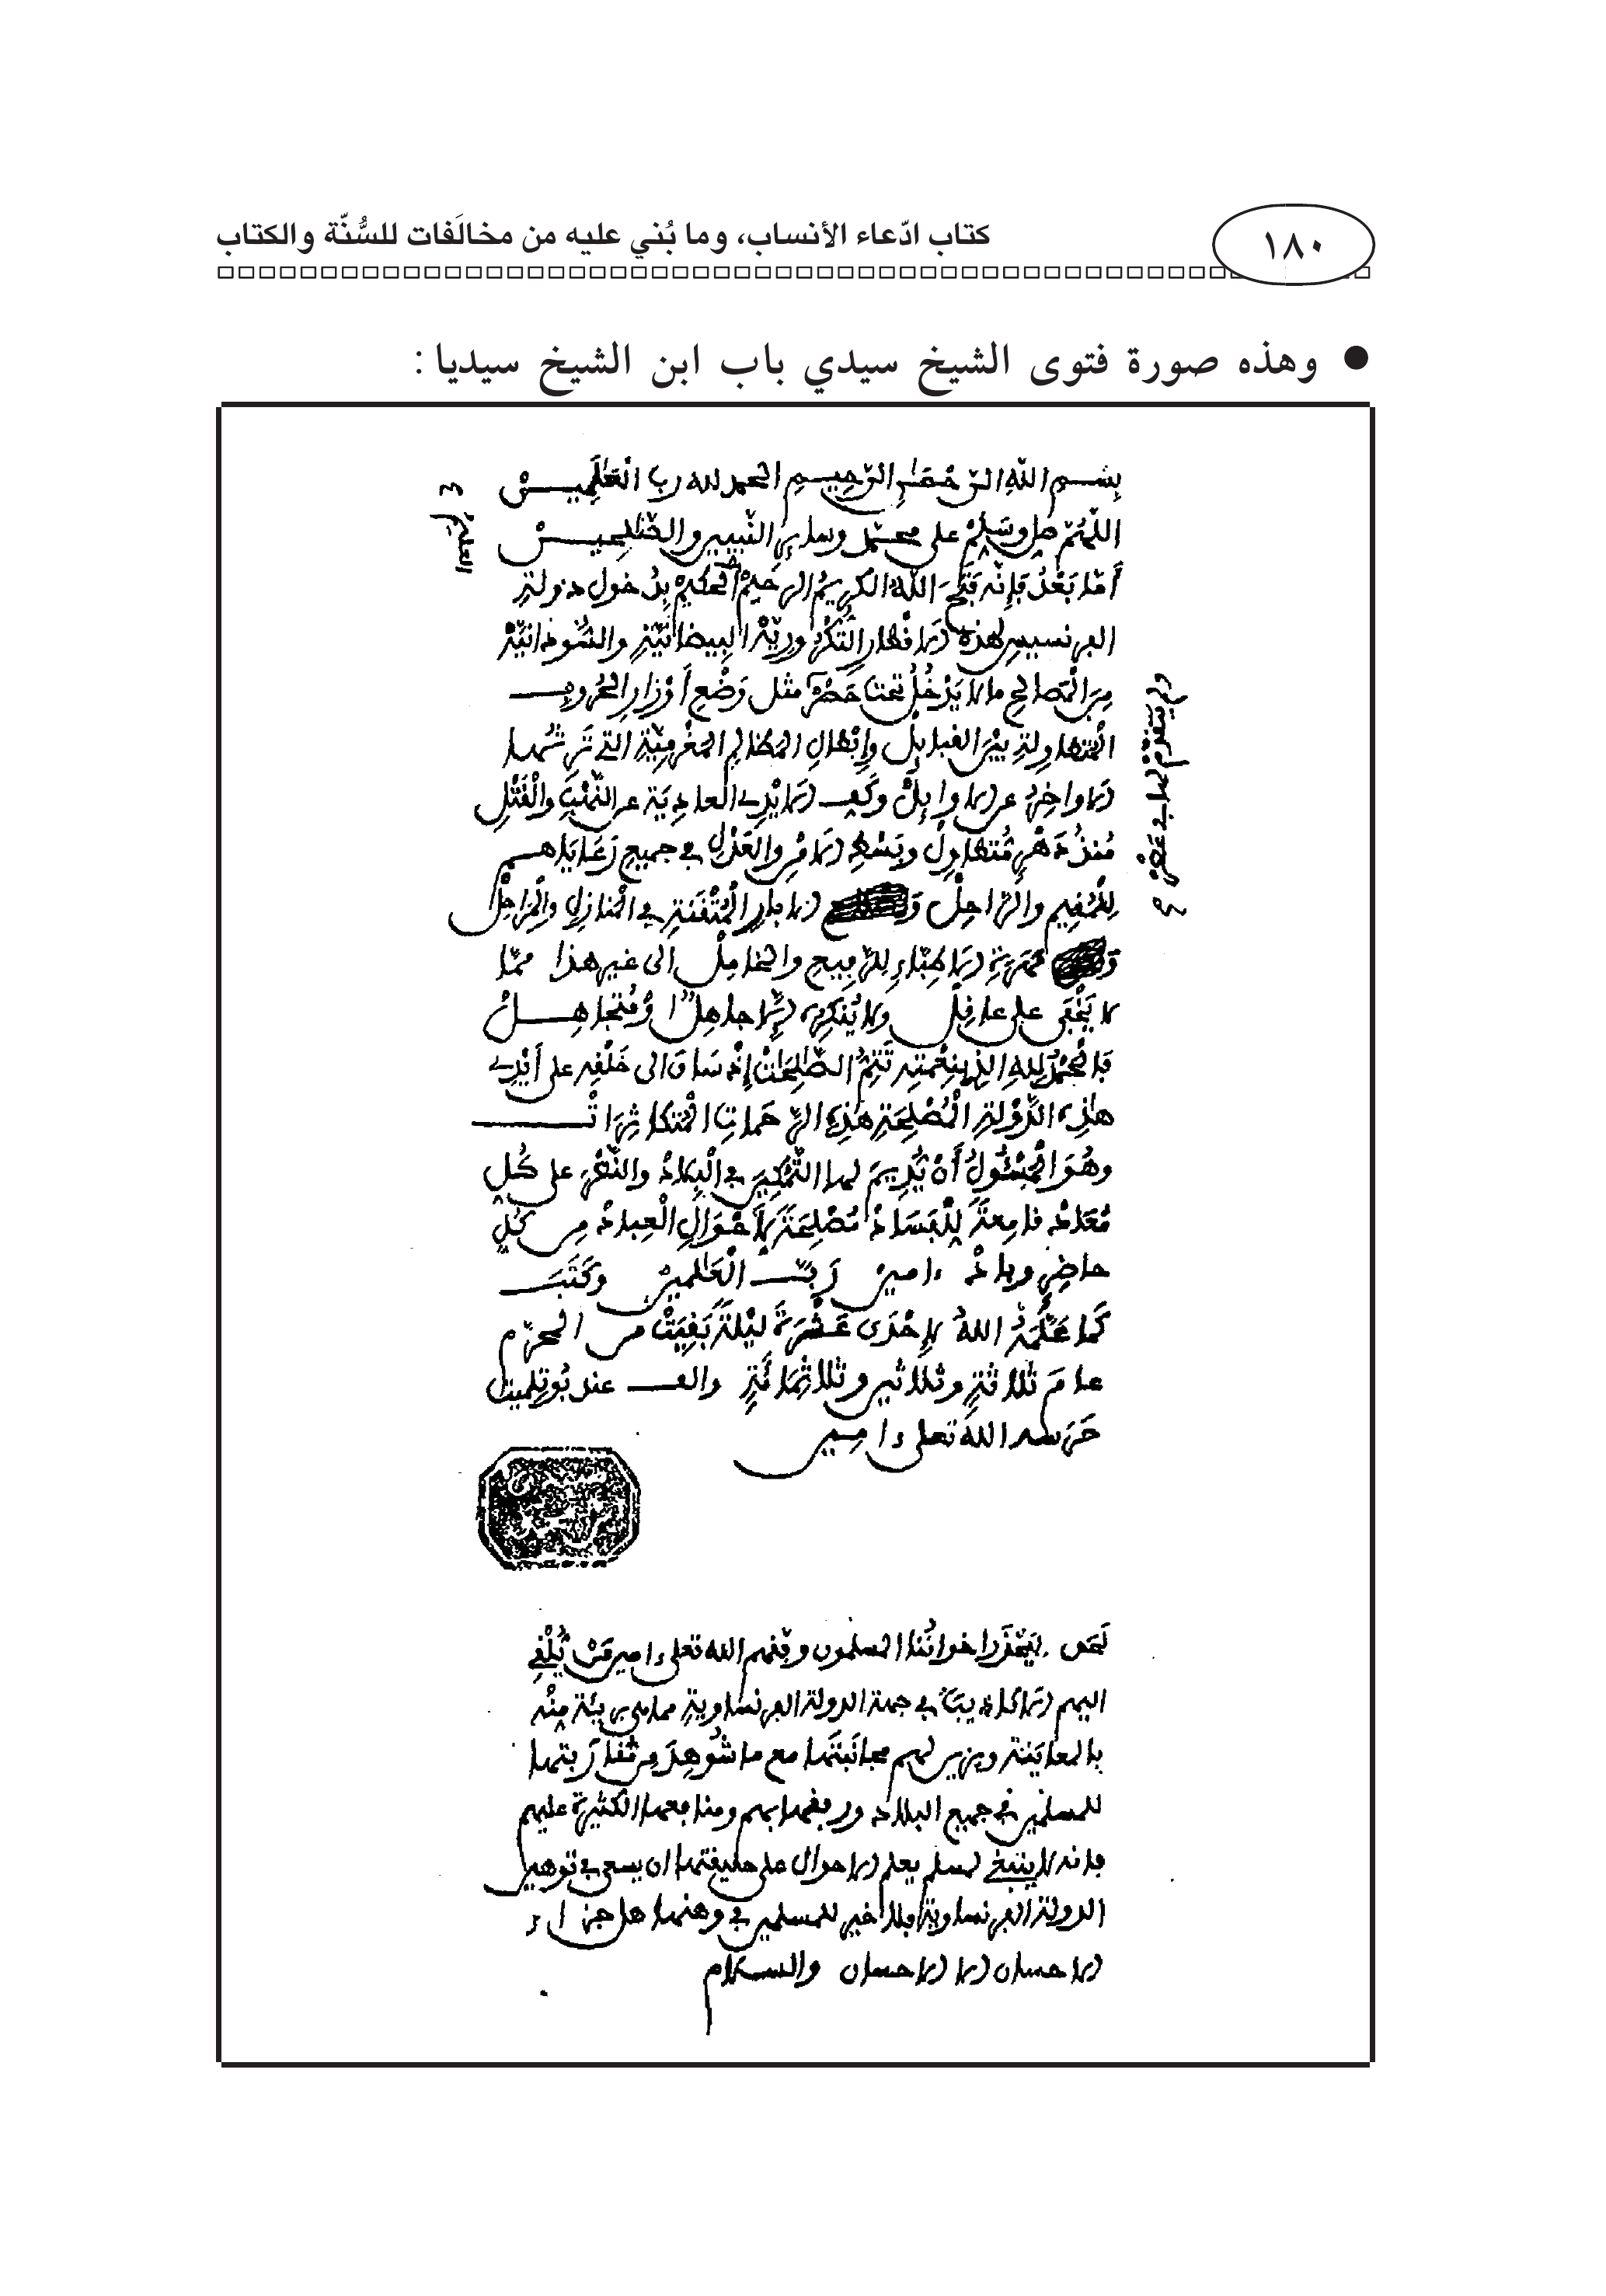 ١٨٠
كتاب ادّعاء الأنساب، وما بُني عليه من مخالَفات للسُّنّة والكتاب
● وهذه صورة فتوى الشيخ سيدي باب ابن الشيخ سيديا:
بسم الله الرحمٰن الرحيم الحمد لله رب العٰلمين
اللهم صل وسلم على محمد وسائر النبيين والصٰلحين
أما بعد فإنه فتح الله الكريم الرحيم الحكيم بدخول دولة
الفرنسيس هذه الأقطار التكرورية البيضانية والسودانية
من المصالح ما لا يدخل تحت حصر مثل وضع أوزار الحروب
المتطاولة بين القبائل وإبطال المظالم المغرمية التي ترثها
الأواخر عن الأوائل وكف الأيدي العادية عن النهب والقتل
منذ دهر متطاول وبسط الأمن والعدل في جميع رعاياهم
للمقيم والراحل الآبار المتقنة في المنازل والمراحل
الأطباء للرفيع والخامل الى غير هذا مما
لا يخفى على عاقل ولا ينكره إلا جاهل أو متجاهل
فالحمد لله الذي بنعمته تتم الصٰلحٰت إذ ساق الى خلقه على أيدي
هذه الدولة المصلحة هذه الرحمات المتكاثرات
وهو المسئول أن يديم لها التمكين في البلاد والنصر على كل
معاد قامعة للفساد مصلحة لأحوال العباد من كل
حاضر وباد ءامين رب العٰلمين وكتب
كما علمه الله لإحدى عشرة ليلة بقيت من المحرم
عام ثلاثة وثلاثين وثلاثمائة والف عند بوتلميت
حرسه الله تعلى ءامين
ليحذر اخواننا المسلمون وفقهم الله تعلى ءامين من يلقي
اليهم الأكاذيب في جهة الدولة الفرنساوية مما هي بريئة منه
بالمعاينة ويزين لهم مجانبتها مع ما شوهد من مقاربتها
للمسلمين في جميع البلاد ورفقها بهم ومنافعها الكثيرة عليهم
فانه لا ينبغي لمسلم يعلم الاحوال على حقيقتها ان يسعى في توهين
الدولة الفرنساوية فلا خير للمسلمين في وهنها هل جزاء
الاحسان الا الاحسان والسلام